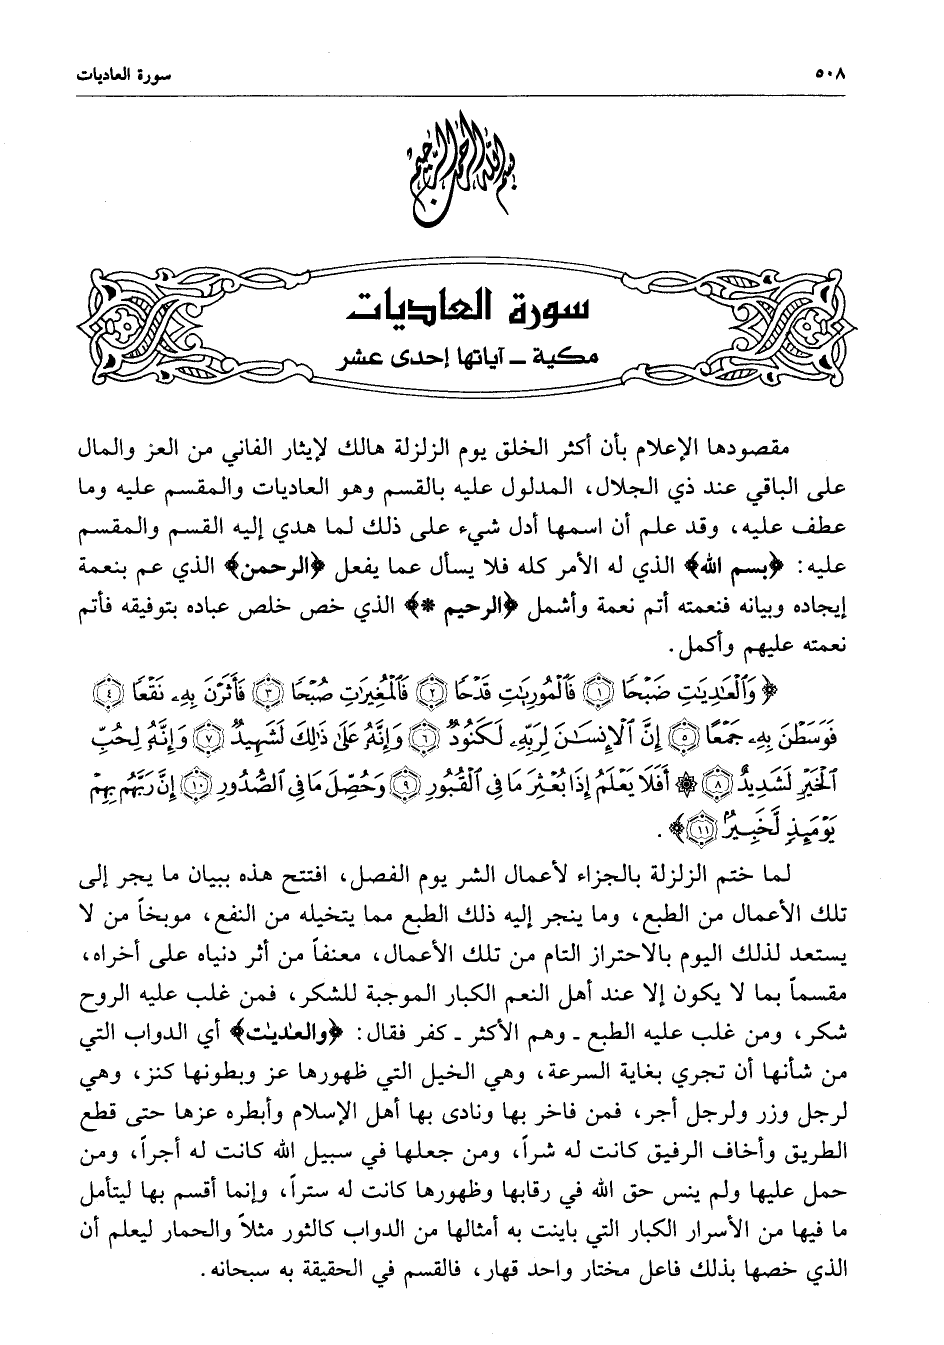 ٥٠٨ سورة العاديات
بسم الله الرحمن الرحيم
سورة العاديات
مكية ـ آياتها إحدى عشر
مقصودها الإعلام بأن أكثر الخلق يوم الزلزلة هالك لإيثار الفاني من العز والمال
على الباقي عند ذي الجلال، المدلول عليه بالقسم وهو العاديات والمقسم عليه وما
عطف عليه، وقد علم أن اسمها أدل شيء على ذلك لما هدي إليه القسم والمقسم
عليه: ﴿بسم الله﴾ الذي له الأمر كله فلا يسأل عما يفعل ﴿الرحمن﴾ الذي عم بنعمة
إيجاده وبيانه فنعمته أتم نعمة وأشمل ﴿الرحيم *﴾ الذي خص خلص عباده بتوفيقه فأتم
نعمته عليهم وأكمل.
﴿وَٱلْعَٰدِيَٰتِ ضَبْحًا ١ فَٱلْمُورِيَٰتِ قَدْحًا ٢ فَٱلْمُغِيرَٰتِ صُبْحًا ٣ فَأَثَرْنَ بِهِۦ نَقْعًا ٤
فَوَسَطْنَ بِهِۦ جَمْعًا ٥ إِنَّ ٱلْإِنسَٰنَ لِرَبِّهِۦ لَكَنُودٌ ٦ وَإِنَّهُۥ عَلَىٰ ذَٰلِكَ لَشَهِيدٌ ٧ وَإِنَّهُۥ لِحُبِّ
ٱلْخَيْرِ لَشَدِيدٌ ٨ ۞ أَفَلَا يَعْلَمُ إِذَا بُعْثِرَ مَا فِى ٱلْقُبُورِ ٩ وَحُصِّلَ مَا فِى ٱلصُّدُورِ ١٠ إِنَّ رَبَّهُم بِهِمْ
يَوْمَئِذٍ لَّخَبِيرٌۢ ١١﴾.
لما ختم الزلزلة بالجزاء لأعمال الشر يوم الفصل، افتتح هذه ببيان ما يجر إلى
تلك الأعمال من الطبع، وما ينجر إليه ذلك الطبع مما يتخيله من النفع، موبخاً من لا
يستعد لذلك اليوم بالاحتراز التام من تلك الأعمال، معنفاً من أثر دنياه على أخراه،
مقسماً بما لا يكون إلا عند أهل النعم الكبار الموجبة للشكر، فمن غلب عليه الروح
شكر، ومن غلب عليه الطبع ـ وهم الأكثر ـ كفر فقال: ﴿والعٰديٰت﴾ أي الدواب التي
من شأنها أن تجري بغاية السرعة، وهي الخيل التي ظهورها عز وبطونها كنز، وهي
لرجل وزر ولرجل أجر، فمن فاخر بها ونادى بها أهل الإسلام وأبطره عزها حتى قطع
الطريق وأخاف الرفيق كانت له شراً، ومن جعلها في سبيل الله كانت له أجراً، ومن
حمل عليها ولم ينس حق الله في رقابها وظهورها كانت له ستراً، وإنما أقسم بها ليتأمل
ما فيها من الأسرار الكبار التي باينت به أمثالها من الدواب كالثور مثلاً والحمار ليعلم أن
الذي خصها بذلك فاعل مختار واحد قهار، فالقسم في الحقيقة به سبحانه.